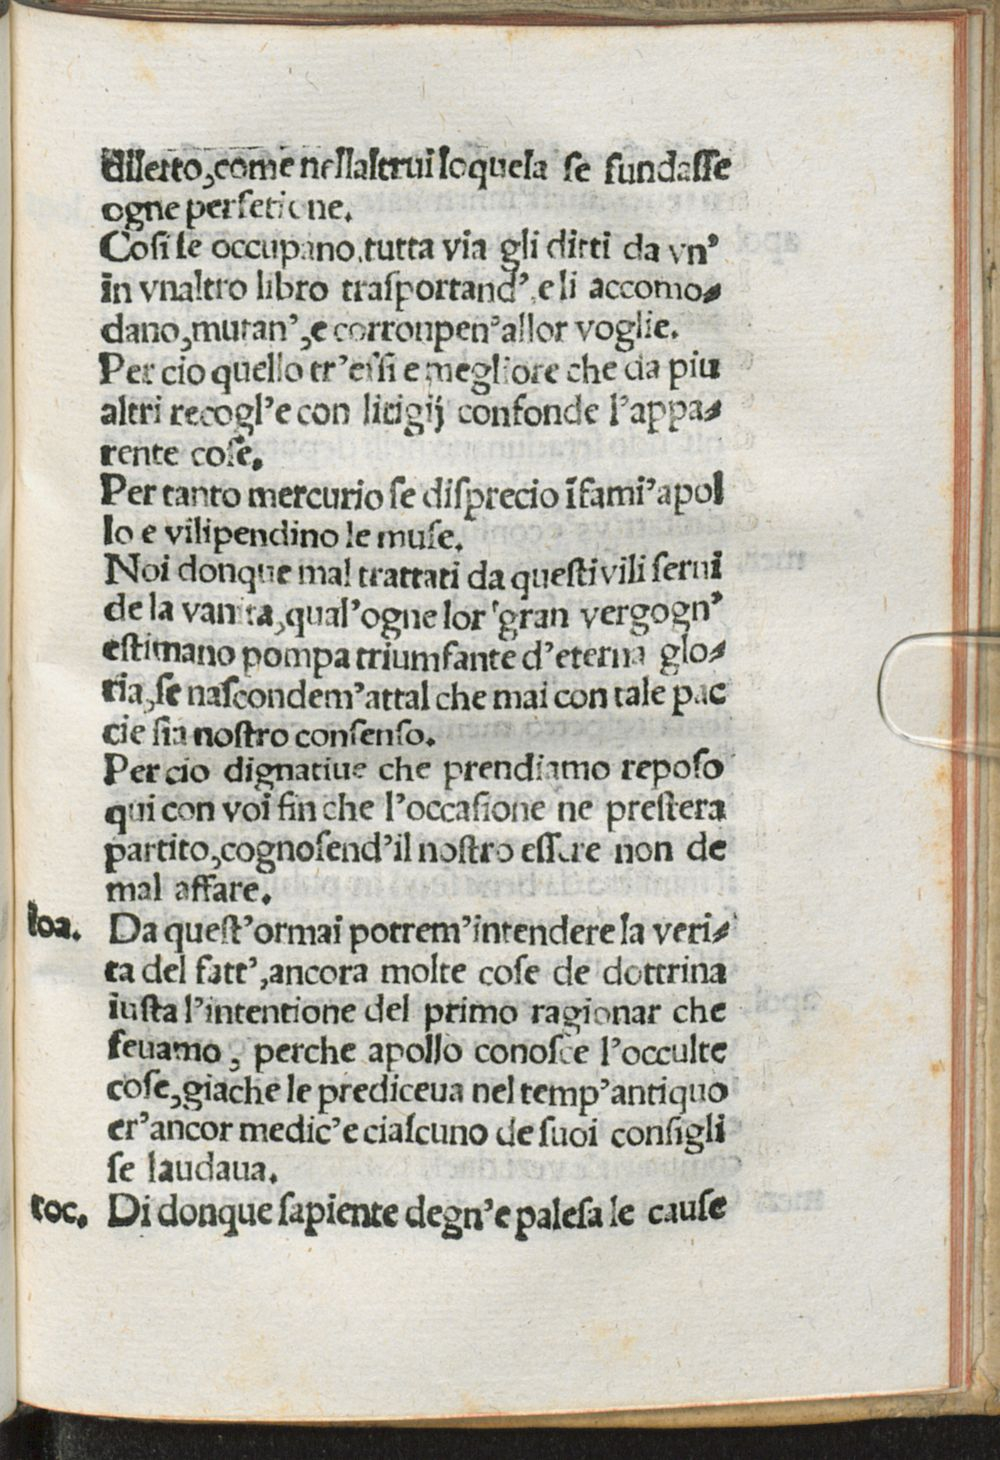 diletto,come nellaltrui loquela se fundasse
ogne perfetione.
Cosi se occupano,tutta via gli ditti da vn'
in vnaltro libro trasportand',e li accomo-
dano,mutan',e corronpen'allor voglie.
Per cio quello tr'essi e megliore che da piu
altri recogl'e con litigij confonde l'appa-
rente cose.
Per tanto mercurio se disprecio īfami'apol
lo e vilipendino le muse.
Noi donque mal trattati da questi vili serui
de la vanita,qual'ogne lor gran vergogn'
estimano pompa triumfante d'eterna glo-
ria,se nascondem'attal che mai con tale pac
cie sia nostro consenso.
Per cio dignatiue che prendiamo reposo
qui con voi fin che l'occasione ne prestera
partito,cognosend'il nostro essere non de
mal affare.
Ioa. Da quest'ormai potrem'intendere la veri-
ta del fatt',ancora molte cose de dottrina
iusta l'intentione del primo ragionar che
feuamo, perche apollo conosce l'occulte
cose,giache le prediceua nel temp'antiquo
er'ancor medic'e ciascuno de suoi consigli
se laudaua.
roc. Di donque sapiente degn'e palesa le cause